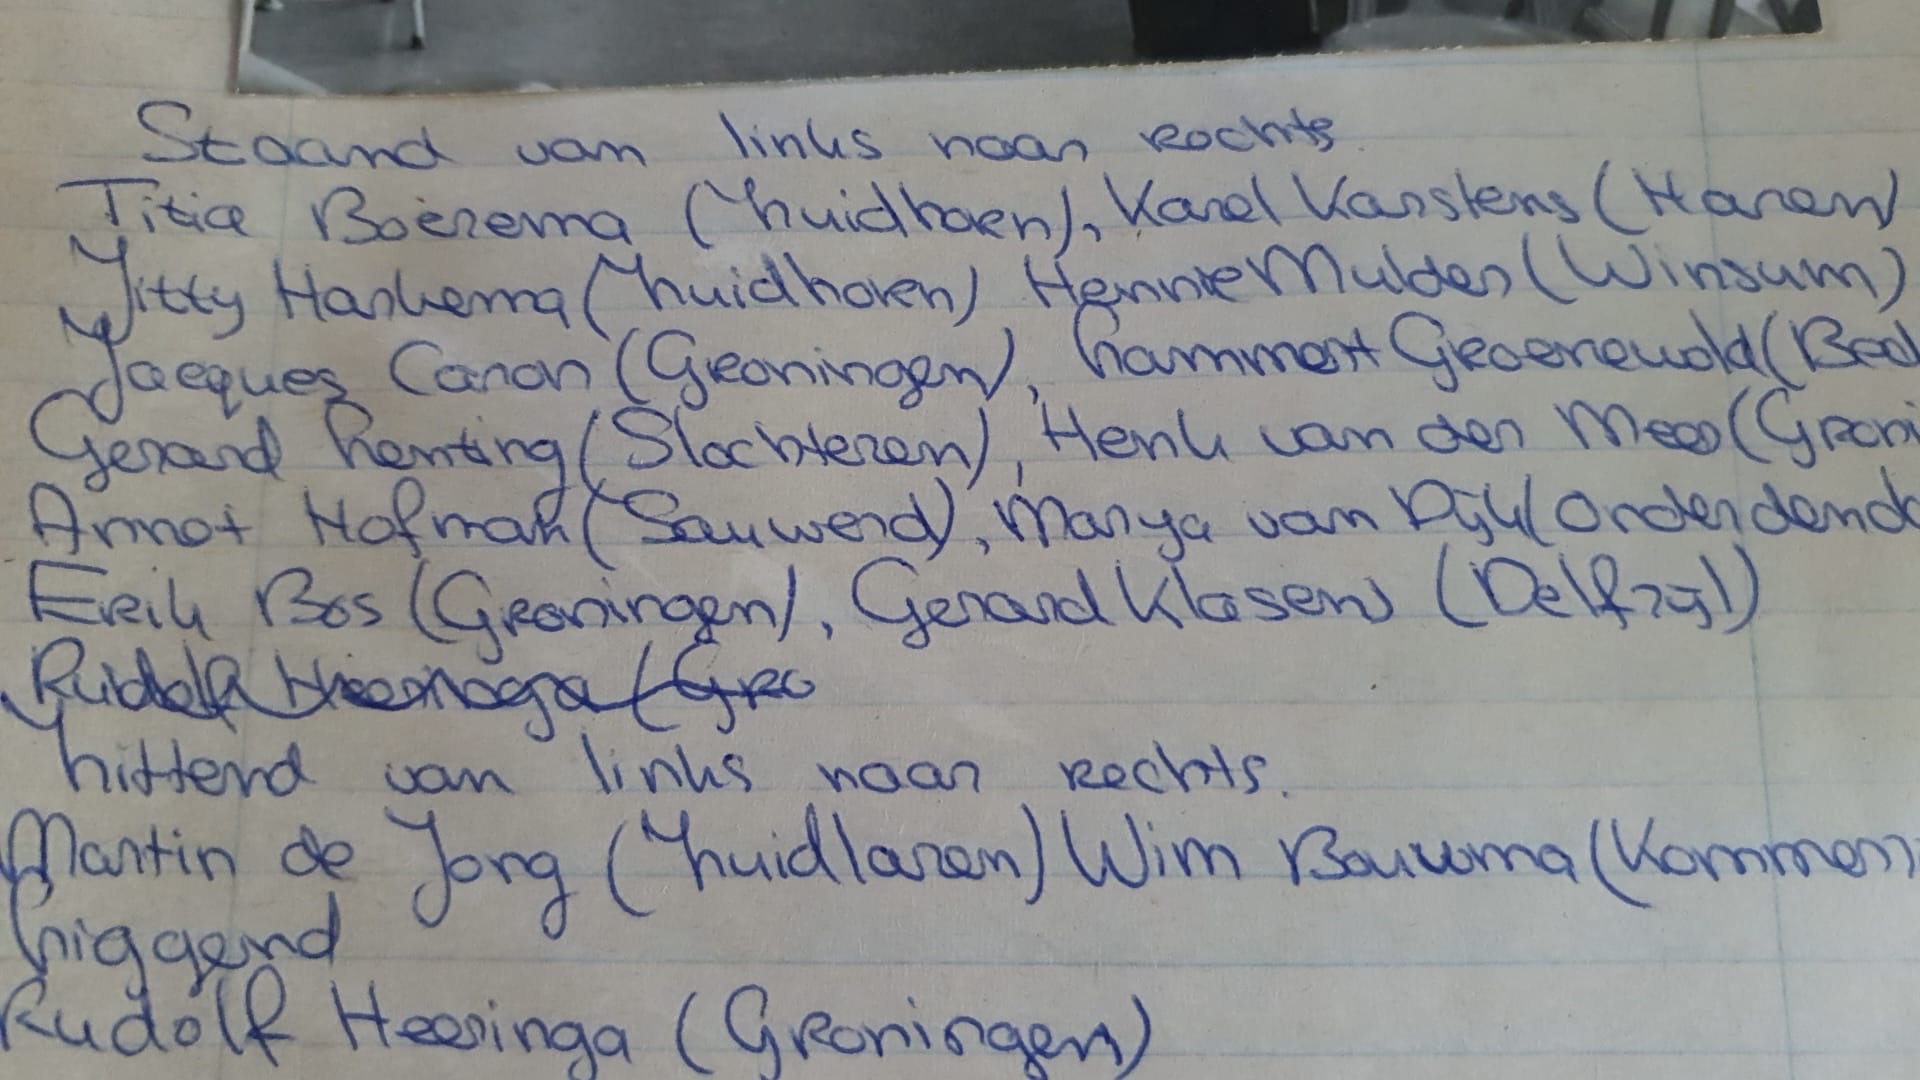 Staand van links naar rechts.
Titia Boerema (Zuidhorn), Karel Karstens (Haren)
Jitty Harkema (Zuidhorn) Hennie Mulder (Winsum)
Jacques Canon (Groningen), Lammert Groenewold (Bed
Gerard Lenting (Slochteren), Henk van der Meer (Groni
Annot Hofman (Sauwerd), Manya van Dijk (Onderdend
Erik Bos (Groningen), Gerard Klasens (Delfzijl)
Rudolf (Gro
Zittend van links naar rechts.
Martin de Jong (Zuidlaren) Wim Bouwma (Kommer
Liggend
Rudolf Heeringa (Groningen)